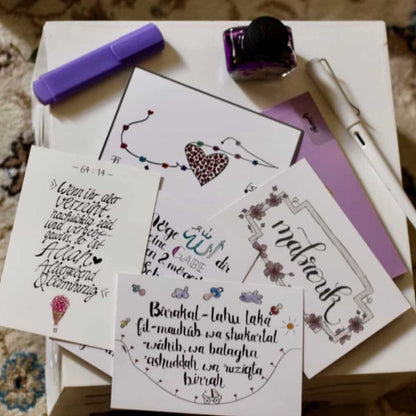 - 64:14 -
Wenn ihr aber
verzeiht,
nachsichtig seid
und vergebt,
gewiß, so ist
Allah
Allvergebend
& Barmherzig
Möge
الله
deine
GABE
dir
mabrouk
Bārakal-lahu laka
fil-mauhūb wa shakartal
wāhib, wa balagha
ashuddah wa ruziqta
birrah